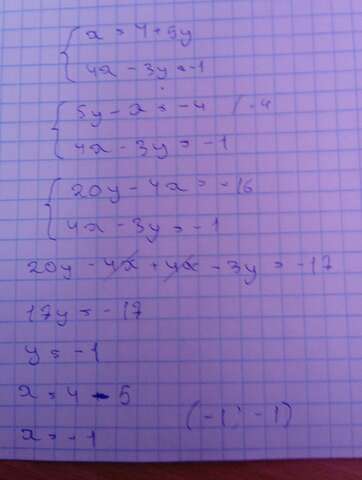 x = 4 + 5y
4x - 3y = -1
5y - x = -4 / ·4
4x - 3y = -1
20y - 4x = -16
4x - 3y = -1
20y - 4x + 4x - 3y = -17
17y = -17
y = -1
x = 4 - 5
x = -1 (-1; -1)